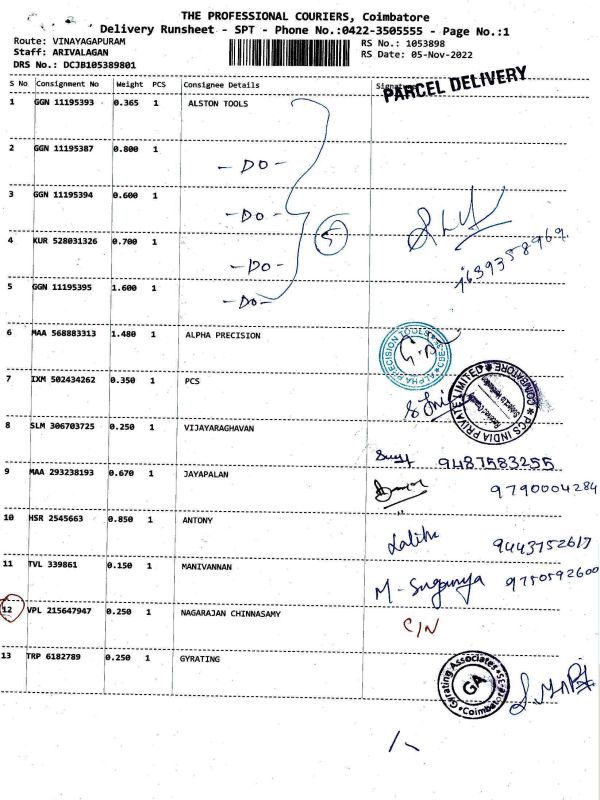 THE PROFESSIONAL COURIERS, Coimbatore
Delivery Runsheet - SPT - Phone No.:0422-3505555 - Page No.:1
Route: VINAYAGAPURAM RS No.: 1053898
Staff: ARIVALAGAN RS Date: 05-Nov-2022
DRS No.: DCJB105389801
PARCEL DELIVERY
S No Consignment No Weight PCS Consignee Details
1 GGN 11195393 0.365 1 ALSTON TOOLS
2 GGN 11195387 0.800 1 - DO -
3 GGN 11195394 0.600 1 - DO -
5
4 KUR 528031326 0.700 1 - DO -
5 GGN 11195395 1.600 1 - DO -
6 MAA 568883313 1.480 1 ALPHA PRECISION
ALPHA PRECISION TOOLS
7 IXM 502434262 0.350 1 PCS
PCS INDIA PRIVATE LIMITED COIMBATORE
8 SLM 306703725 0.250 1 VIJAYARAGHAVAN 9487583255
9 MAA 293238193 0.670 1 JAYAPALAN 9790004284
10 HSR 2545663 0.850 1 ANTONY Lalitha 9443752617
11 TVL 339861 0.150 1 MANIVANNAN M - Sugunya 9750592600
12 VPL 215647947 0.250 1 NAGARAJAN CHINNASAMY C/N
13 TRP 6182789 0.250 1 GYRATING
Gyrating Associates
GA
Coimbatore